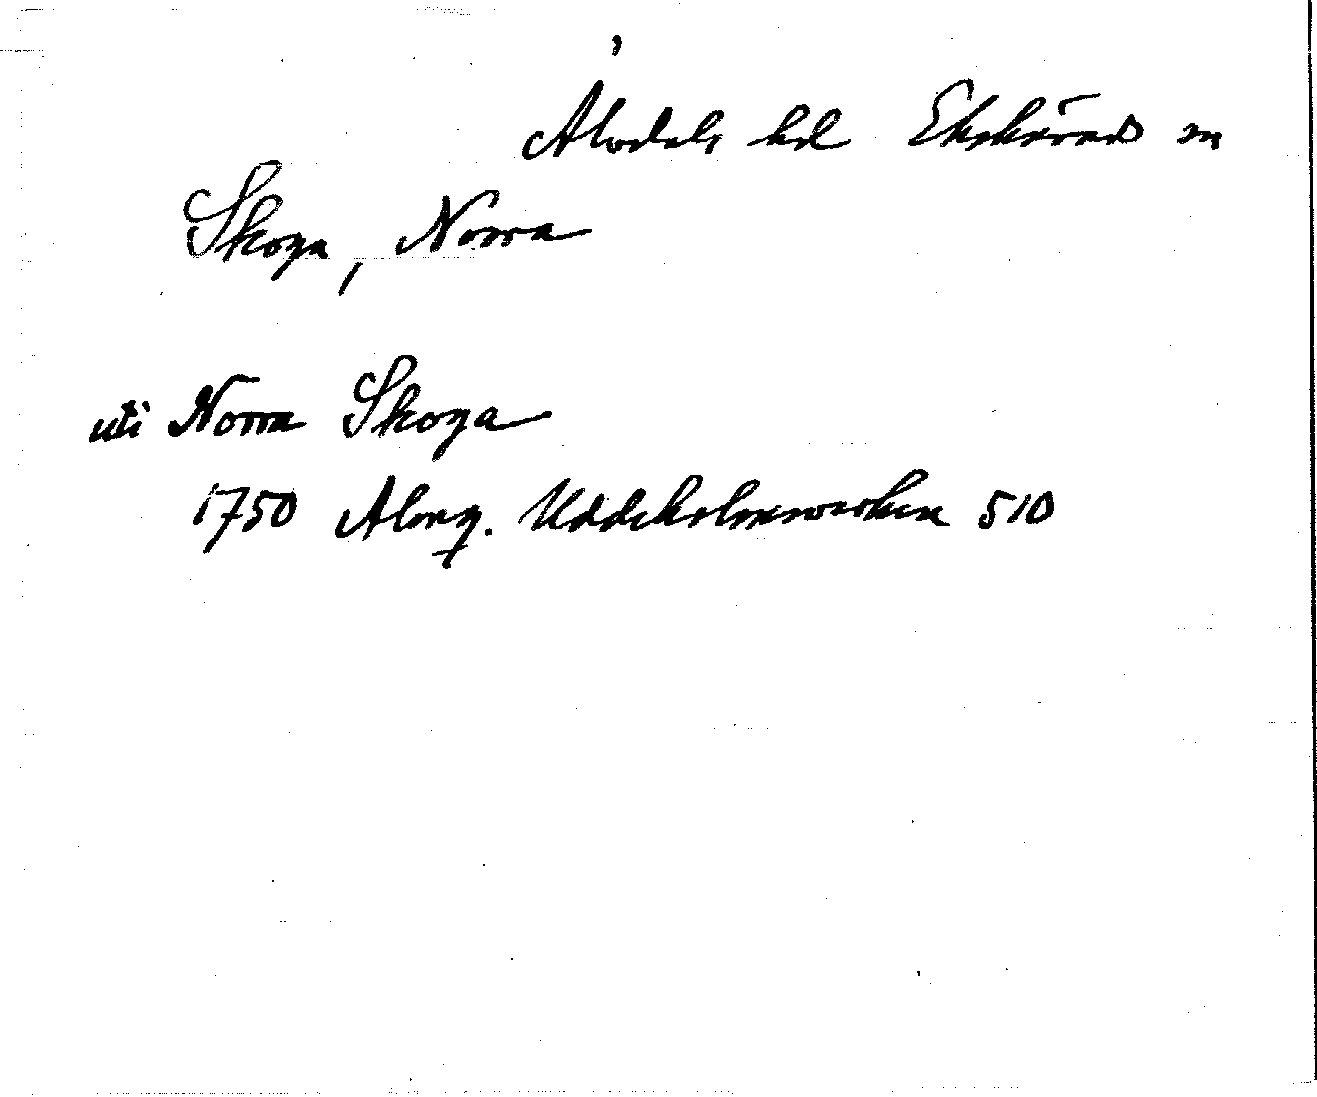 Älvdals hd Ekshärads sn
Skoga, Norra
uti Norra Skoga
1750 Almq. Uddeholmsverken 510